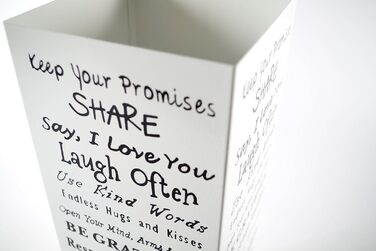 Keep Your Promises
SHARE
Say, I Love You
Laugh Often
Use Kind Words
Endless Hugs and Kisses
Open Your Mind, Arms
BE GRA
Keep Your Promises
SHARE